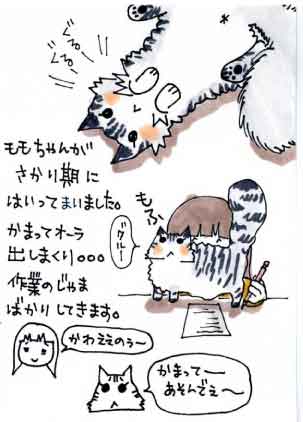 ぐるる〜
ぐるる〜
ももちゃんが
さかり期に
はいってまいました。
かまってオーラ
出しまくり。。。
作業のじゃま
ばかりしてきます。
もふ
グルー
かわええのぅ〜
かまってー
あそんでぇ〜